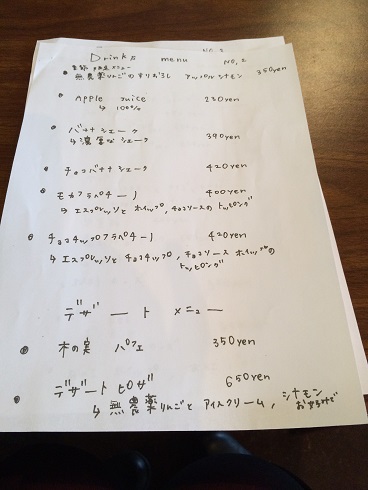 NO, 2
Drinks menu NO, 2
季節 限定メニュー
無農薬りんごのすりおろし アップル シナモン 350yen
Apple Juice 230yen
↳ 100%
バナナシェーク 390yen
↳ 濃厚なシェーク
チョコバナナシェーク 420yen
モカフラペチーノ 400yen
↳ エスプレッソと ホイップ,チョコソースの トッピング
チョコチップフラペチーノ 420yen
↳ エスプレッソと チョコチップ,チョコソース ホイップの
トッピング
デザート メニュー
木の実 パフェ 350yen
デザートピザ 650yen
↳ 無農薬りんごと アイスクリーム,シナモン
お好みで